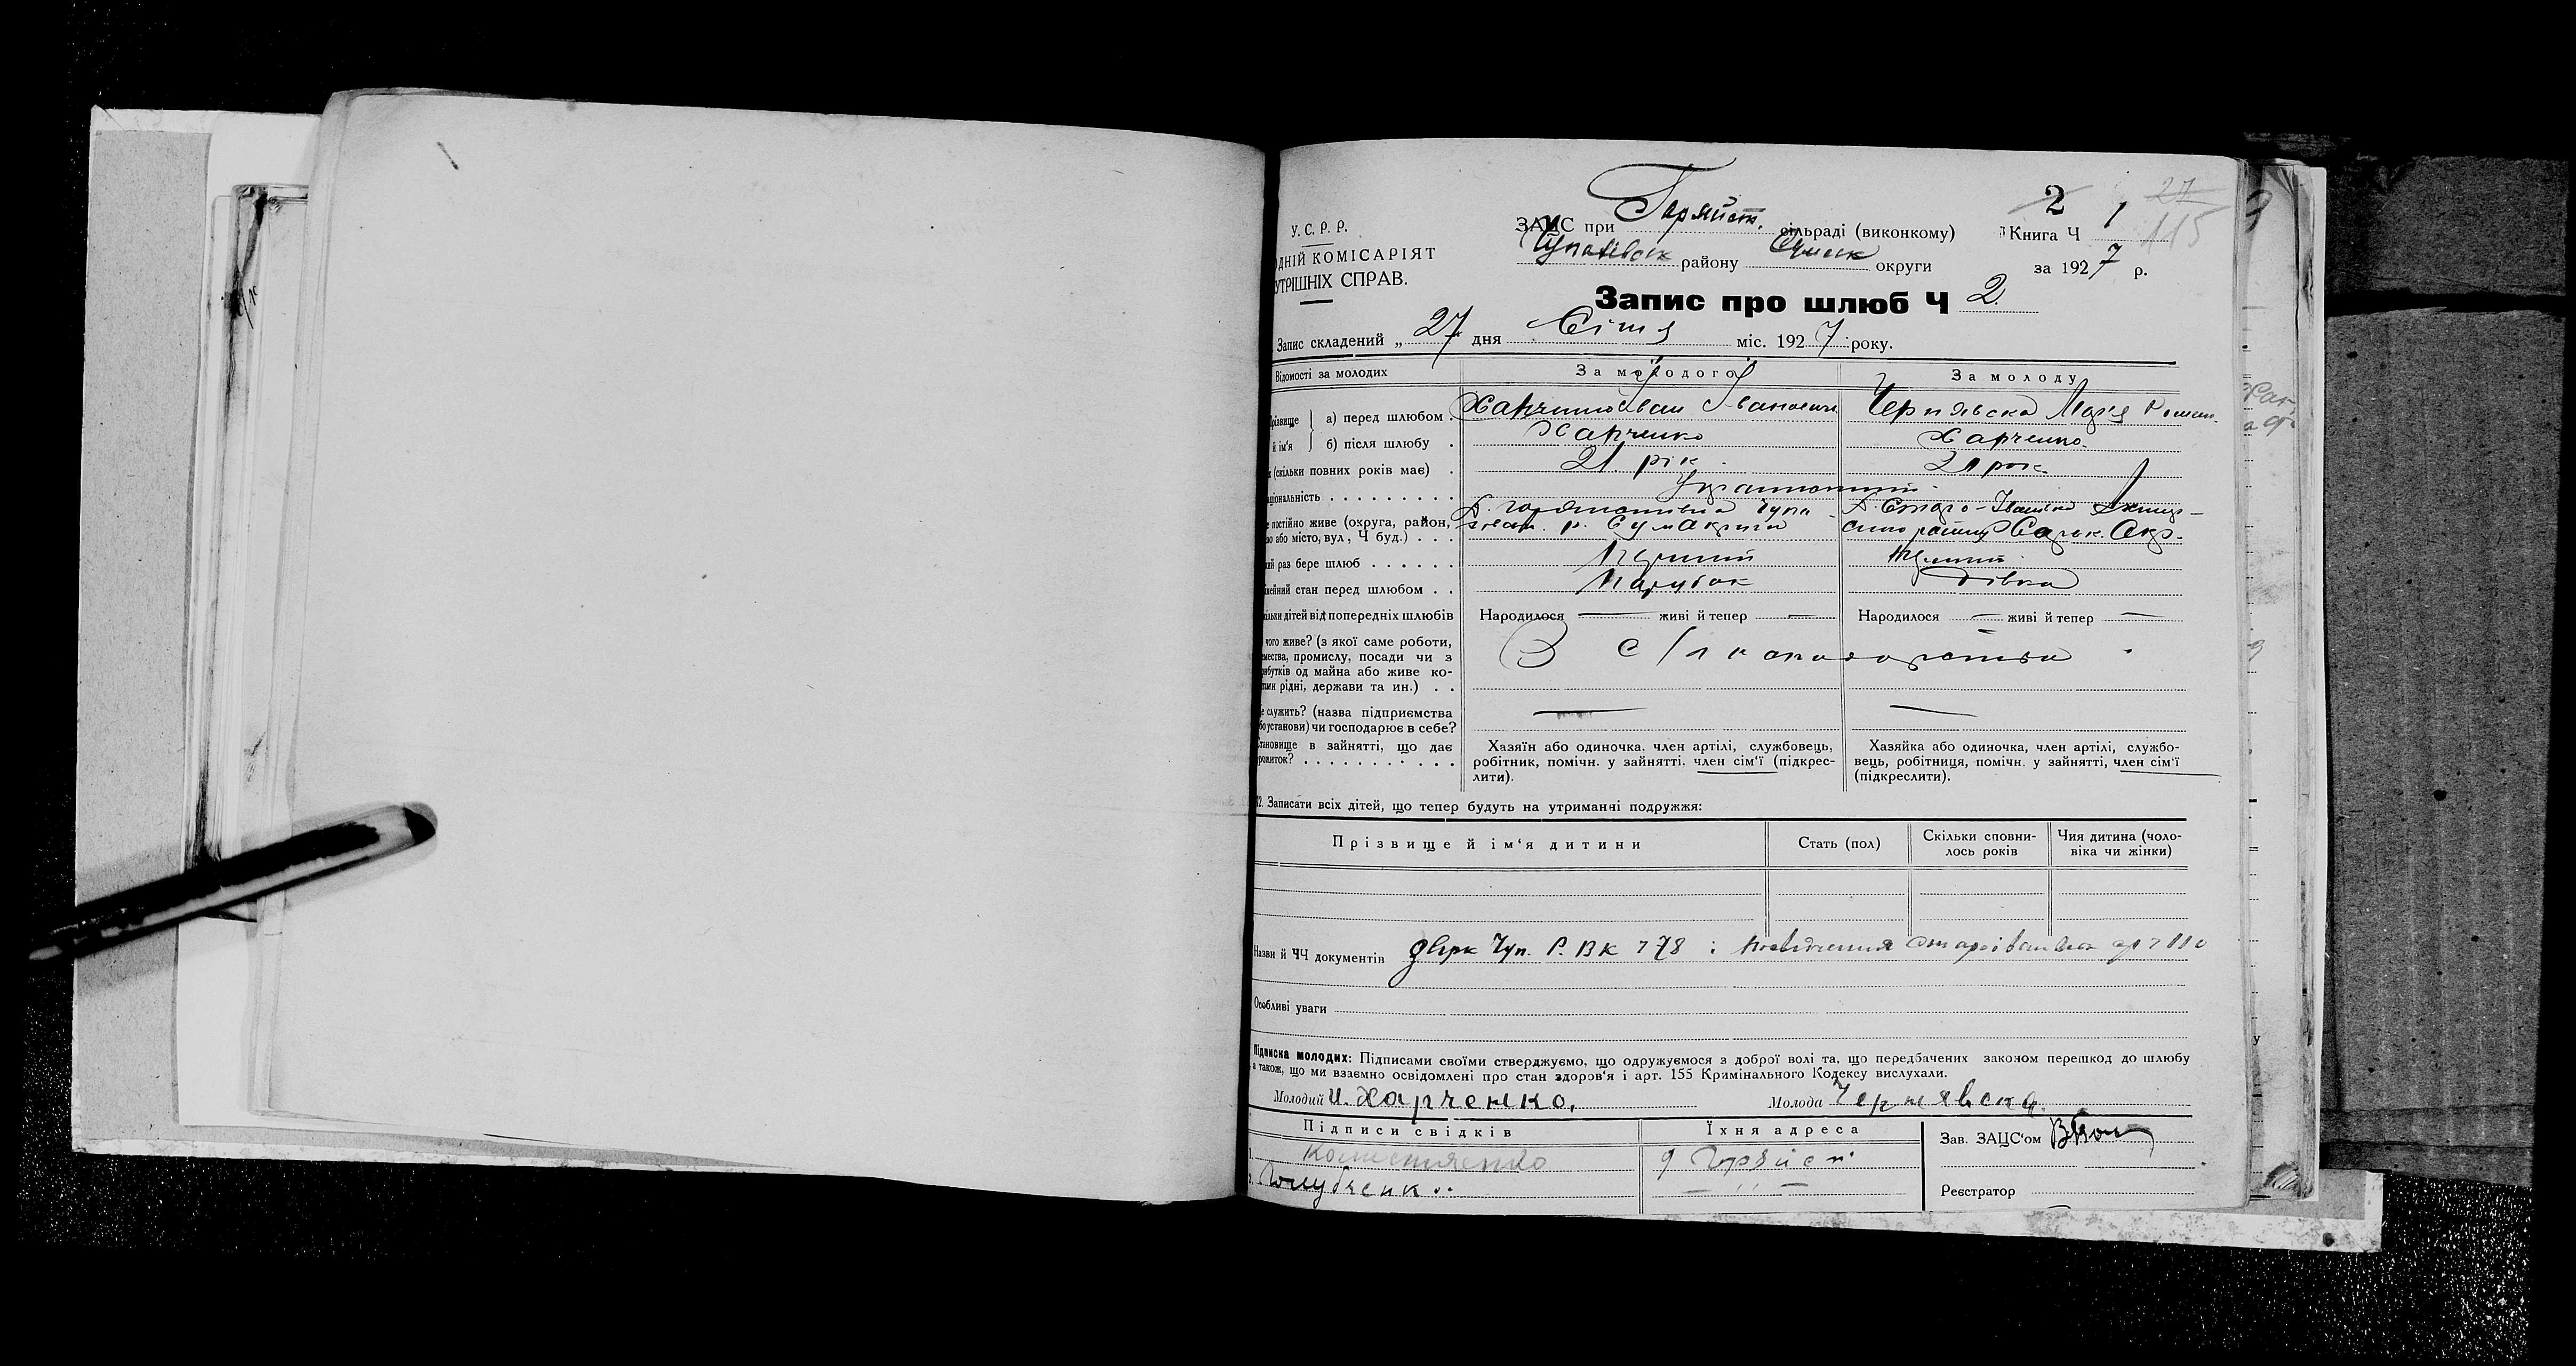 У.С.Р.Р.
ОДНІЙ КОМІСАРІЯТ
УТРІШНІХ СПРАВ.
ЗАЦС при Горяйст. сільраді (виконкому)
Чупахівськ району Сумськ округи
2
Книга Ч 1
27
115
за 1927 р.
Запис про шлюб Ч 2.
Запис складений „ 27 дня Січня міс. 1927 року.
Відомості за молодих За молодого За молоду
різвище й ім'я а) перед шлюбом . Харченко Іван Іванович Чернявська Марія Роман.
б) після шлюбу . Харченко Харченко
(скільки повних років має) . 21 рік 21 рок
ціональність . . . . . . . . .
постійно живе (округа, район,
або місто, вул, Ч буд.) . . .
Д. Старо-Іванівка
ий раз бере шлюб . . . . . . Перший Перший
мейний стан перед шлюбом . . Парубок Дівка
ільки дітей від попередніх шлюбів Народилося — живі й тепер — Народилося — живі й тепер —
чого живе? (з якої саме роботи,
емества, промислу, посади чи з
рибутків од майна або живе ко-
тами рідні, держави та ин.) . .
З
е служить? (назва підприємства
бо установи) чи господарює в себе? — —
тановище в зайнятті, що дає
рожиток? . . . . . . . . . . .
Хазяїн або одиночка. член артілі, службовець,
робітник, помічн. у зайнятті. член сім'ї (підкрес-
лити).
Хазяйка або одиночка, член артілі, службо-
вець, робітниця, помічн. у зайнятті, член сім'ї
(підкреслити).
12. Записати всіх дітей, що тепер будуть на утриманні подружжя:
Прізвище й ім'я дитини Стать (пол) Скільки сповни-
лось років Чия дитина (чоло-
віка чи жінки)
Назви й ЧЧ документів Чуп. Р.В К 778 і
Особливі уваги
Підписка молодих: Підписами своїми стверджуємо, що одружуємося з доброї волі та, що передбачених законом перешкод до шлюбу
а також, що ми взаємно освідомлені про стан здоров'я і арт. 155 Кримінального Кодексу вислухали.
Молодий И. Харченко. Молода Чернявска.
Підписи свідків Їхня адреса Зав. ЗАЦС'ом
2. Голубченко. — ,, —
Реєстратор